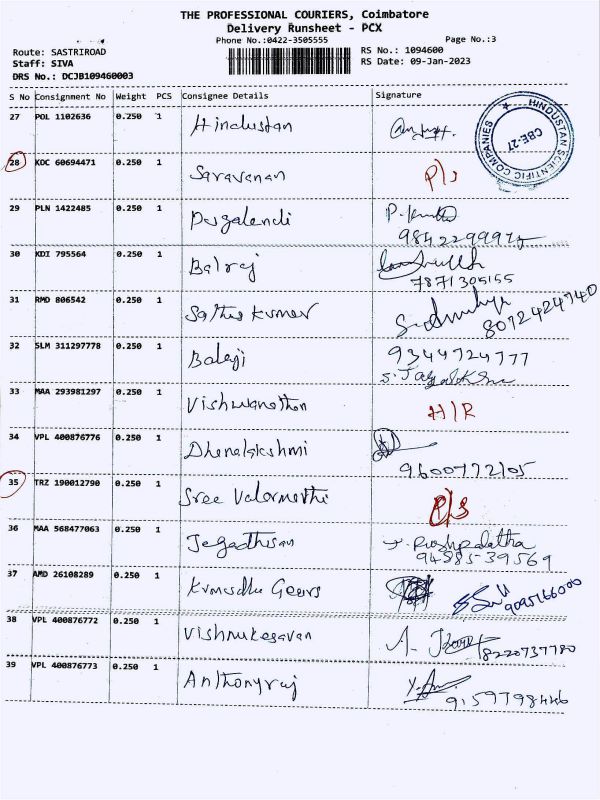 THE PROFESSIONAL COURIERS, Coimbatore
Delivery Runsheet - PCX
Phone No.:0422-3505555 Page No.:3
Route: SASTRIROAD RS No.: 1094600
Staff: SIVA RS Date: 09-Jan-2023
DRS No.: DCJB109460003
S No Consignment No Weight PCS Consignee Details Signature
27 POL 1102636 0.250 1 Hindustan
HINDUSTAN SCIENTIFIC COMPANIES ★ CBE-27
28 KDC 60694471 0.250 1 Saravanan P/S
29 PLN 1422485 0.250 1 Pugalendi P.
30 KDI 795564 0.250 1 Balraj
7871305155
31 RMD 806542 0.250 1 Sathis kumar
8072424740
32 SLM 311297778 0.250 1 Balaji 9344724777
33 MAA 293981297 0.250 1 Vishwanathan H/R
34 VPL 400876776 0.250 1 Dhanalakshmi
9600772105
35 TRZ 190012790 0.250 1 Sree Valarmathi P/S
36 MAA 568477063 0.250 1 Jegadhisan J. Pushpalatha
94885-39569
37 AMD 26108289 0.250 1 Kumudha Gears 9095166000
38 VPL 400876772 0.250 1 Vishnukesavan A. 8220737780
39 VPL 400876773 0.250 1 Anthonyraj
9159798446